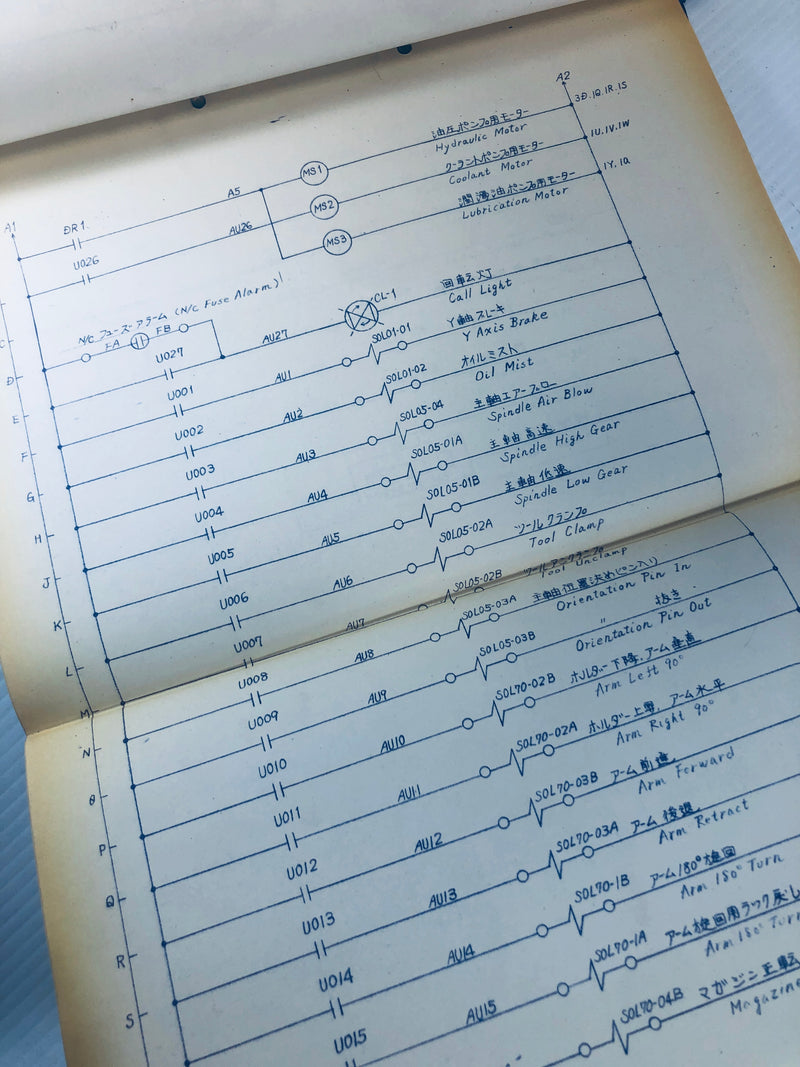 A2
3D.1Q.1R.1S
油圧ポンプ用モーター
Hydraulic Motor
MS1
A5
DR1
A1
1U.1V.1W
クーラントポンプ用モーター
Coolant Motor
MS2
AU26
U026
1Y.1Q
潤滑油ポンプ用モーター
Lubrication Motor
MS3
回転灯
Call Light
CL-1
N/C フューズ・アラーム (N/C Fuse Alarm)
FA FB
AU27
U027
C
Y軸ブレーキ
Y Axis Brake
SOL01-01
AU1
U001
D
オイルミスト
Oil Mist
SOL01-02
AU2
U002
E
主軸エアーブロー
Spindle Air Blow
SOL05-04
AU3
U003
F
主軸高速
Spindle High Gear
SOL05-01A
AU4
U004
G
主軸低速
Spindle Low Gear
SOL05-01B
AU5
U005
H
ツールクランプ
Tool Clamp
SOL05-02A
AU6
U006
J
ツールアンクランプ
Tool Unclamp
SOL05-02B
AU7
U007
K
主軸位置決めピン入り
Orientation Pin In
SOL05-03A
AU8
U008
L
〃 抜き
Orientation Pin Out
SOL05-03B
AU9
U009
M
ホルダー下降、アーム垂直
Arm Left 90°
SOL70-02B
AU10
U010
N
ホルダー上昇、アーム水平
Arm Right 90°
SOL70-02A
AU11
U011
O
アーム前進
Arm Forward
SOL70-03B
AU12
U012
P
アーム後退
Arm Retract
SOL70-03A
AU13
U013
Q
アーム180°旋回
Arm 180° Turn
SOL70-1B
AU14
U014
R
アーム旋回用ラック戻し
Arm 180° Turn
SOL70-1A
AU15
U015
S
マガジン正転
Magazine
SOL70-04B